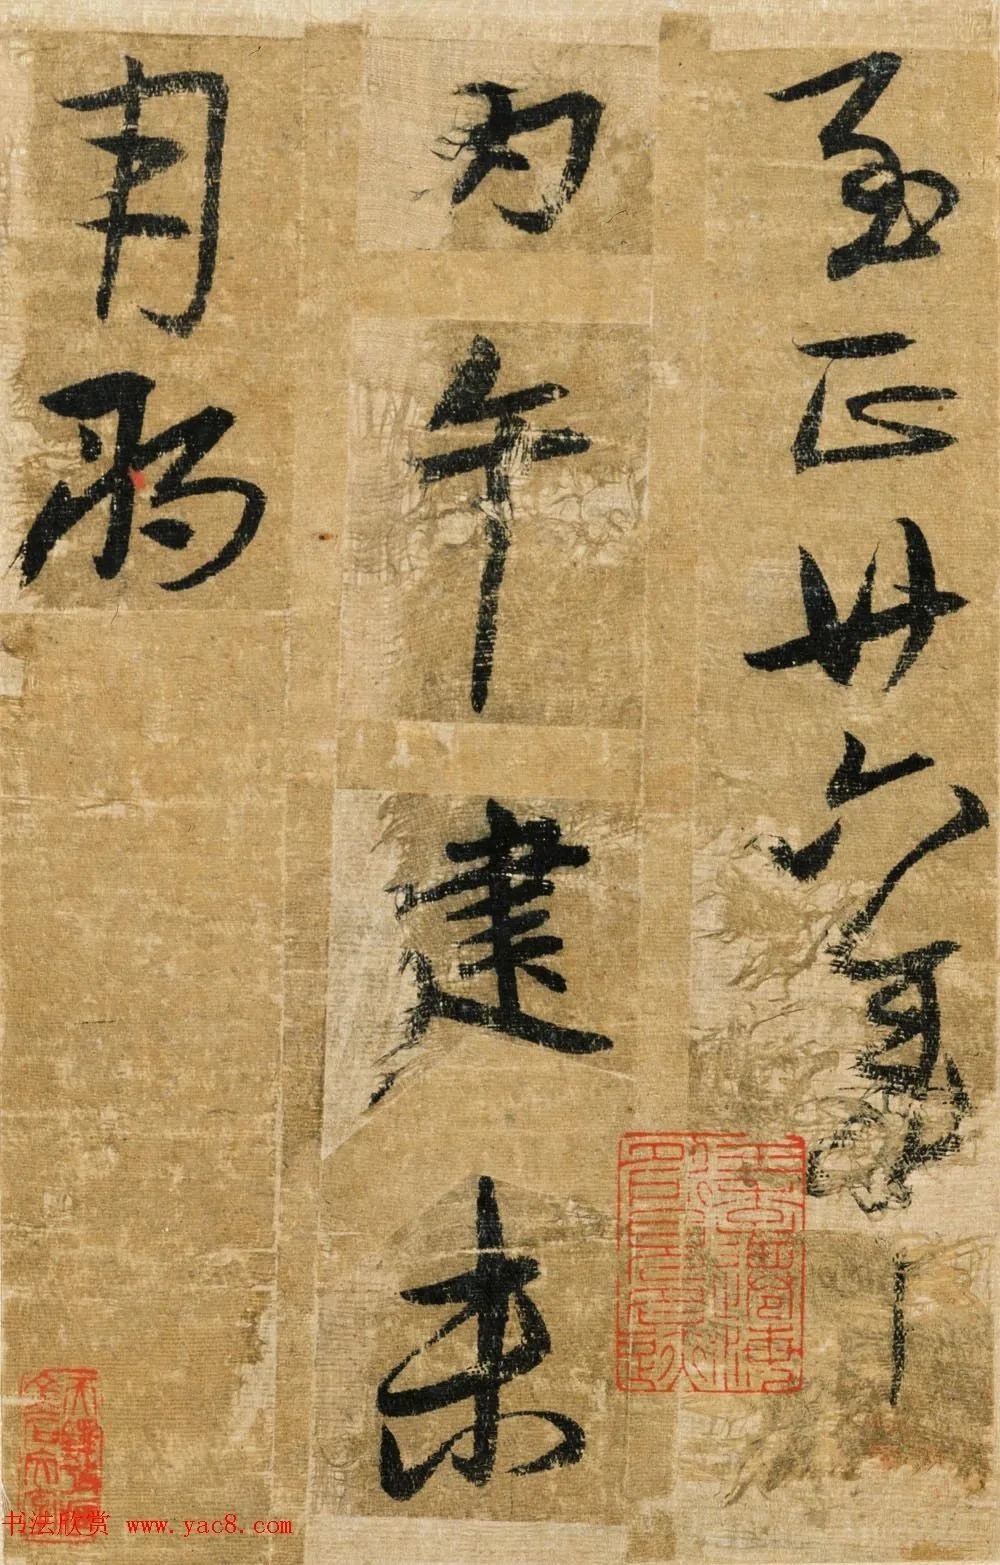 至正廿六年
丙午建未
月
书法欣赏 www.yac8.com